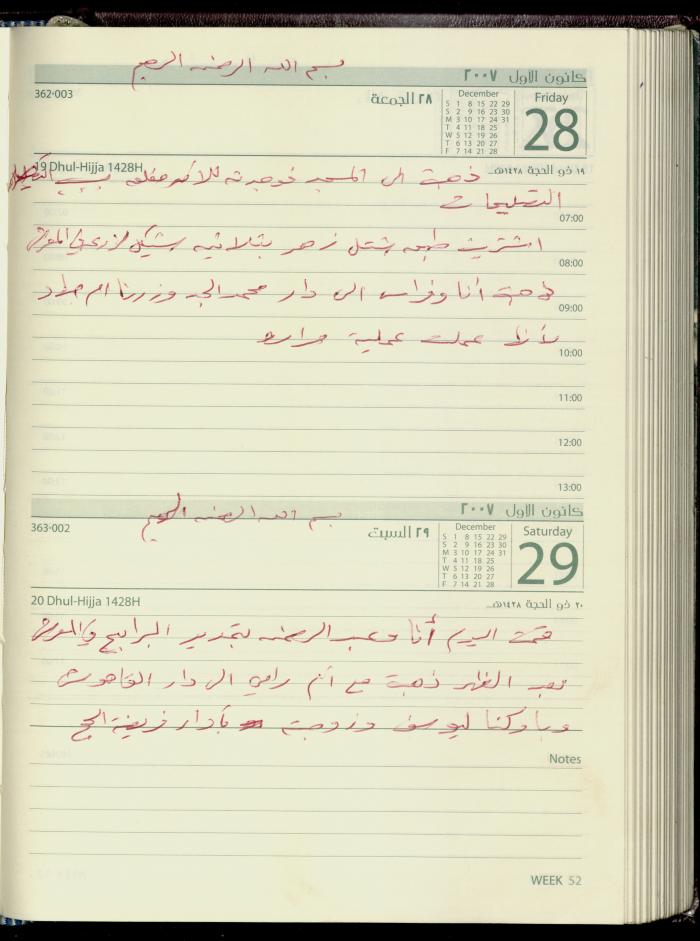 بسم الله الرحمن الرحيم
كانون الأول ٢٠٠٧
362-003
٢٨ الجمعة
December
S 1 8 15 22 29
S 2 9 16 23 30
M 3 10 17 24 31
T 4 11 18 25
W 5 12 19 26
T 6 13 20 27
F 7 14 21 28
Friday
28
19 Dhul-Hijja 1428H
١٩ ذو الحجة ١٤٢٨هـ
ذهبت الى المسجد فوجدته للأسف مغلقه بسبب
التصليحات
07:00
اشتريت طبعه شتل زهر بثلاثين شيكل لزرعه في
08:00
ذهبت أنا وفراس الى دار محمد الجد وزرنا ام
09:00
لأنها عملت عملية مراره
10:00
11:00
12:00
13:00
بسم الله الرحمن الرحيم
كانون الأول ٢٠٠٧
363-002
٢٩ السبت
December
S 1 8 15 22 29
S 2 9 16 23 30
M 3 10 17 24 31
T 4 11 18 25
W 5 12 19 26
T 6 13 20 27
F 7 14 21 28
Saturday
29
20 Dhul-Hijja 1428H
٢٠ ذو الحجة ١٤٢٨هـ
قمت اليوم أنا وعبد الرحمن بتجدير البرابيج في
بعد الظهر ذهبت مع ام رامي الى دار
وباركنا ليوسف وزوجته بأداء فريضة الحج
Notes
WEEK 52